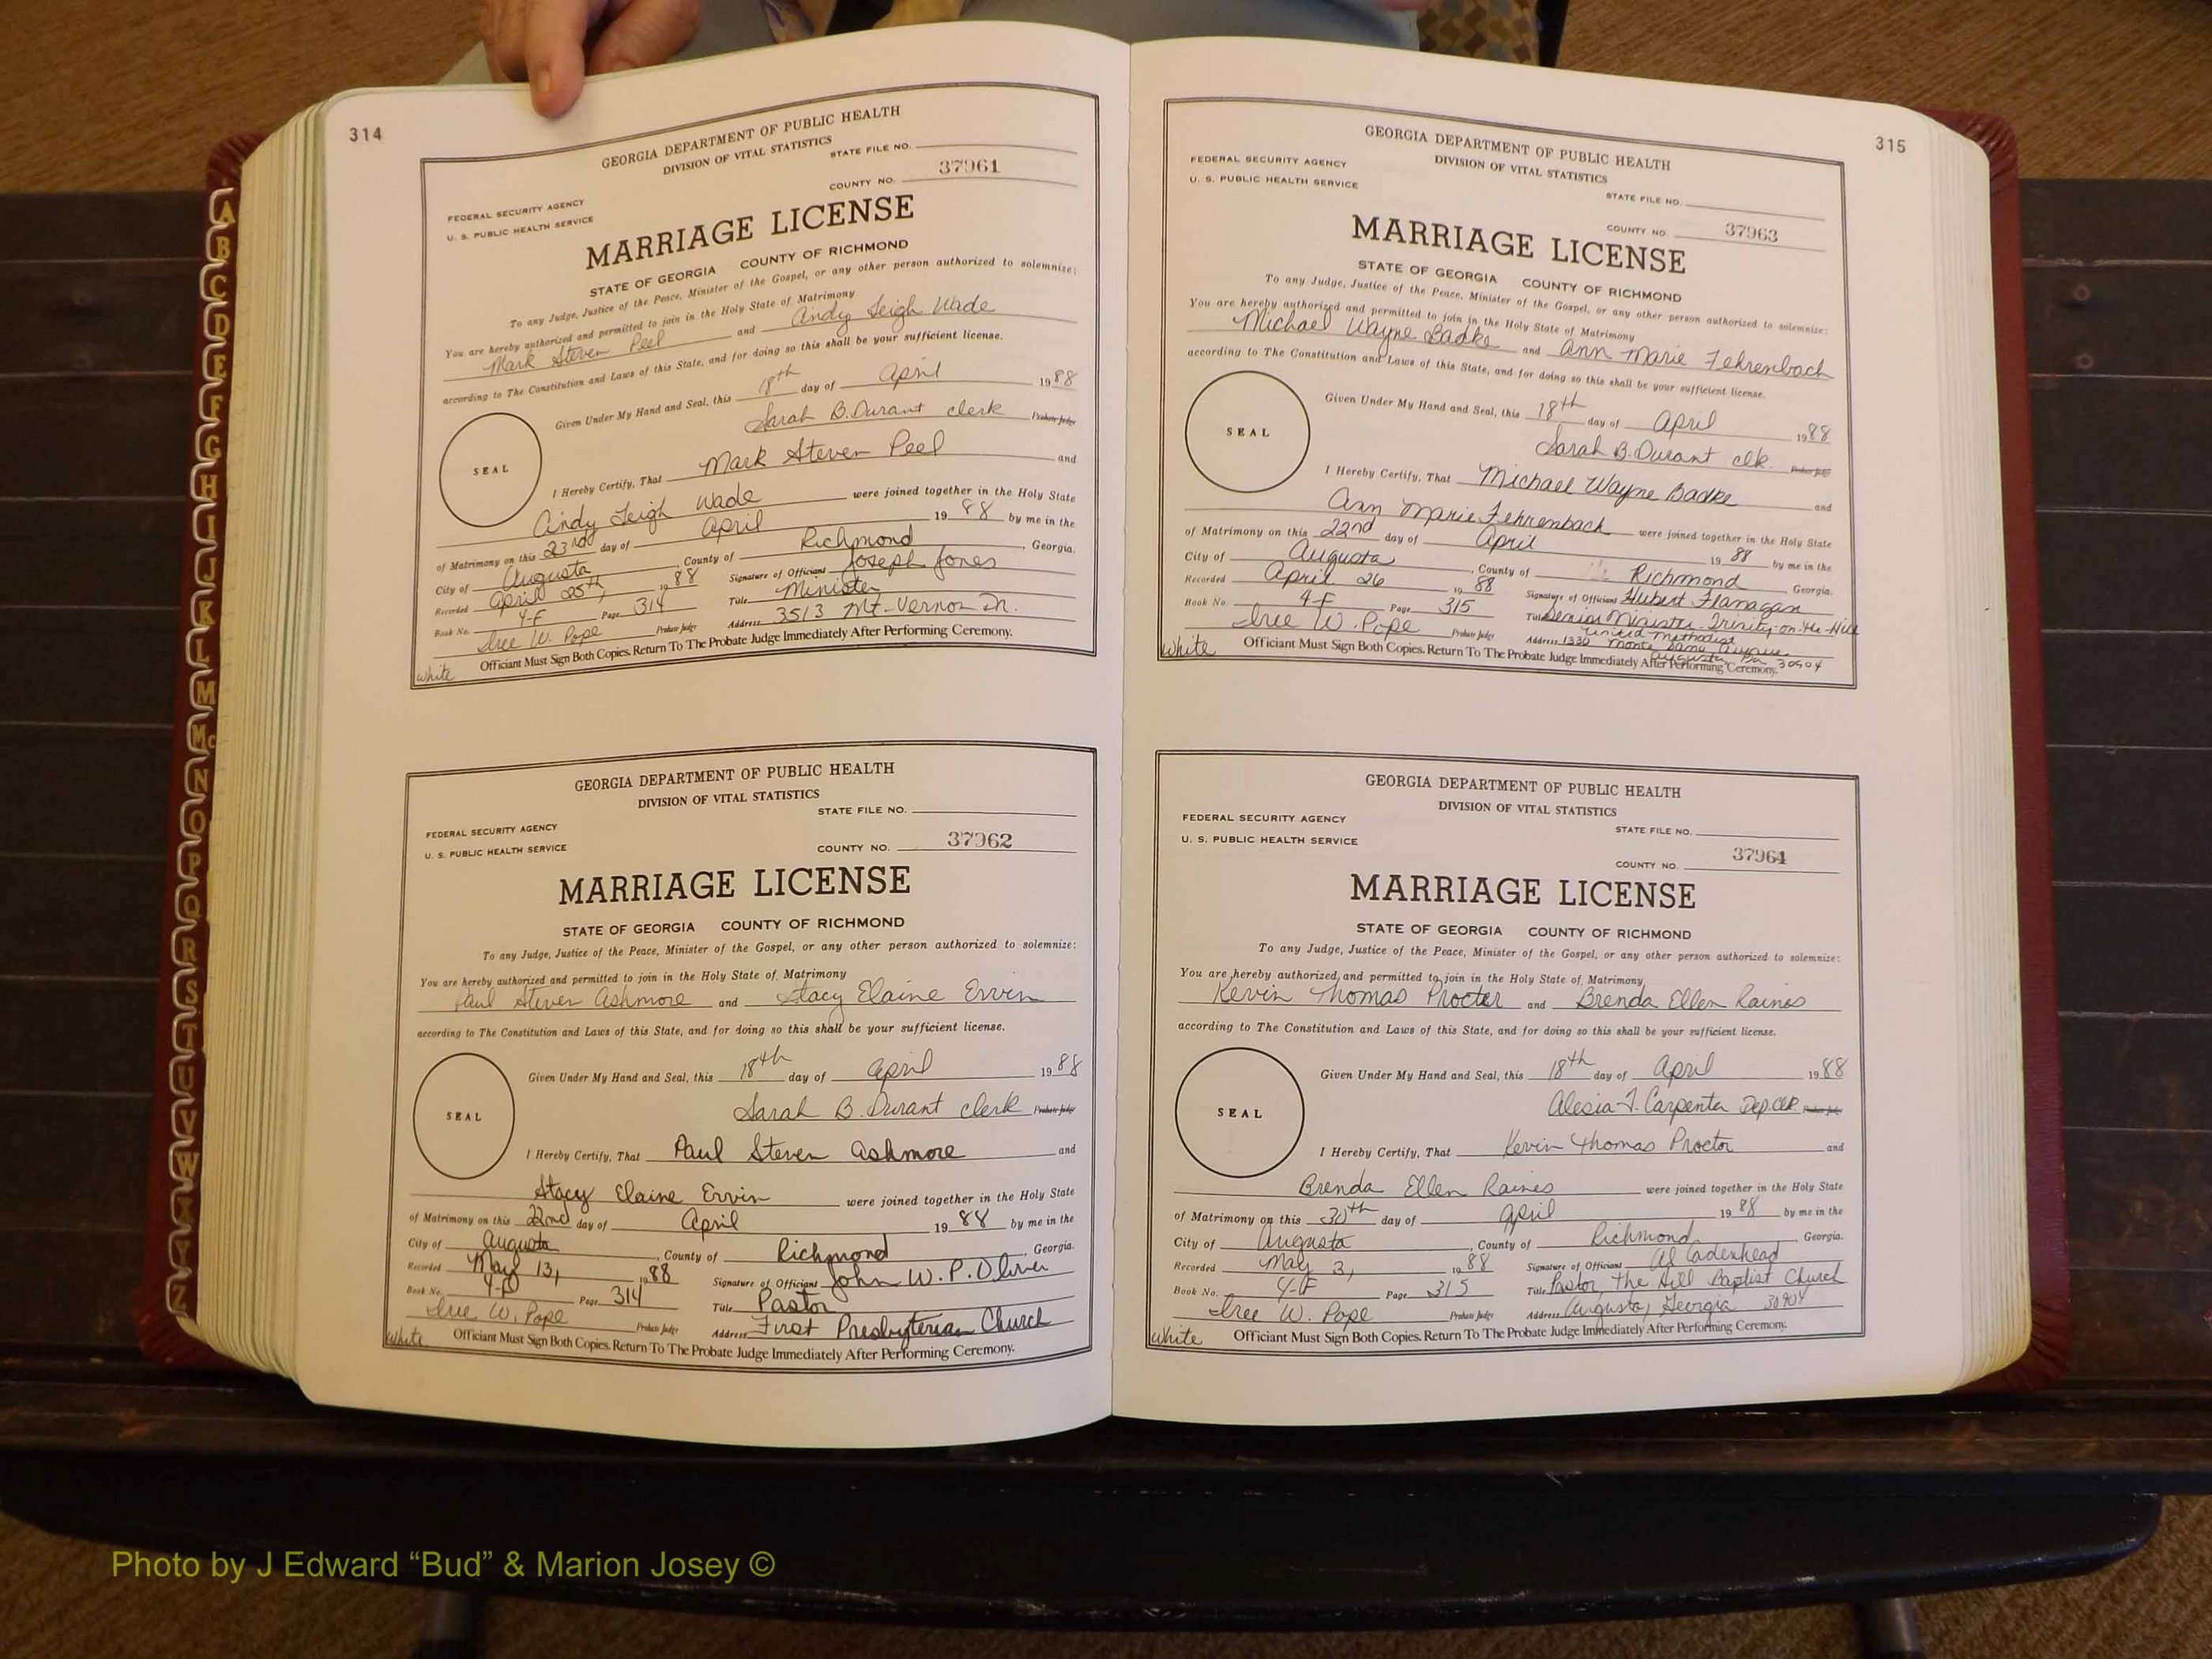 314
GEORGIA DEPARTMENT OF PUBLIC HEALTH
DIVISION OF VITAL STATISTICS
STATE FILE NO.
COUNTY NO. 37961
FEDERAL SECURITY AGENCY
U. S. PUBLIC HEALTH SERVICE
MARRIAGE LICENSE
STATE OF GEORGIA COUNTY OF RICHMOND
To any Judge, Justice of the Peace, Minister of the Gospel, or any other person authorized to solemnize:
You are hereby authorized and permitted to join in the Holy State of Matrimony
Mark Steven Peel and Andy Leigh Wade
according to The Constitution and Laws of this State, and for doing so this shall be your sufficient license.
Given Under My Hand and Seal, this 18th day of April 1988
Sarah B. Durant clerk Probate Judge
SEAL
I Hereby Certify, That Mark Steven Peel and
Andy Leigh Wade were joined together in the Holy State
of Matrimony on this 23rd day of April 19 88 by me in the
City of Augusta, County of Richmond, Georgia.
Recorded April 25th, 1988 Signature of Officiant Joseph Jones
Book No. 4-F Page 314 Title Minister
Iree W. Pope Probate Judge Address 3513 Mt. Vernon Dr.
Officiant Must Sign Both Copies. Return To The Probate Judge Immediately After Performing Ceremony.
White
GEORGIA DEPARTMENT OF PUBLIC HEALTH
DIVISION OF VITAL STATISTICS
STATE FILE NO.
FEDERAL SECURITY AGENCY
U. S. PUBLIC HEALTH SERVICE
COUNTY NO. 37962
MARRIAGE LICENSE
STATE OF GEORGIA COUNTY OF RICHMOND
To any Judge, Justice of the Peace, Minister of the Gospel, or any other person authorized to solemnize:
You are hereby authorized and permitted to join in the Holy State of Matrimony
Paul Steven Ashmore and Stacy Elaine Ervin
according to The Constitution and Laws of this State, and for doing so this shall be your sufficient license.
Given Under My Hand and Seal, this 18th day of April 1988
Sarah B. Durant clerk Probate Judge
SEAL
I Hereby Certify, That Paul Steven Ashmore and
Stacy Elaine Ervin were joined together in the Holy State
of Matrimony on this 22nd day of April 19 88 by me in the
City of Augusta, County of Richmond, Georgia.
Recorded May 13, 1988 Signature of Officiant John W. P. Oliver
Book No. Page 314 Title Pastor
Iree W. Pope Probate Judge Address First Presbyterian Church
Officiant Must Sign Both Copies. Return To The Probate Judge Immediately After Performing Ceremony.
White
315
GEORGIA DEPARTMENT OF PUBLIC HEALTH
DIVISION OF VITAL STATISTICS
FEDERAL SECURITY AGENCY
U. S. PUBLIC HEALTH SERVICE
STATE FILE NO.
COUNTY NO. 37963
MARRIAGE LICENSE
STATE OF GEORGIA COUNTY OF RICHMOND
To any Judge, Justice of the Peace, Minister of the Gospel, or any other person authorized to solemnize:
You are hereby authorized and permitted to join in the Holy State of Matrimony
Michael Wayne Badke and Ann Marie Fehrenbach
according to The Constitution and Laws of this State, and for doing so this shall be your sufficient license.
Given Under My Hand and Seal, this 18th day of April 1988
Sarah B. Durant clk. Probate Judge
SEAL
I Hereby Certify, That Michael Wayne Badke and
Ann Marie Fehrenbach were joined together in the Holy State
of Matrimony on this 22nd day of April 19 88 by me in the
City of Augusta, County of Richmond, Georgia.
Recorded April 26 1988 Signature of Officiant Hubert Flanagan
Book No. 4-F Page 315 Title Senior Minister Trinity-on-the-Hill
United Methodist
Iree W. Pope Probate Judge Address 1330 Monte Sano Avenue
Augusta, Ga 30904
Officiant Must Sign Both Copies. Return To The Probate Judge Immediately After Performing Ceremony.
White
GEORGIA DEPARTMENT OF PUBLIC HEALTH
DIVISION OF VITAL STATISTICS
FEDERAL SECURITY AGENCY
U. S. PUBLIC HEALTH SERVICE
STATE FILE NO.
COUNTY NO. 37964
MARRIAGE LICENSE
STATE OF GEORGIA COUNTY OF RICHMOND
To any Judge, Justice of the Peace, Minister of the Gospel, or any other person authorized to solemnize:
You are hereby authorized and permitted to join in the Holy State of Matrimony
Kevin Thomas Procter and Brenda Ellen Raines
according to The Constitution and Laws of this State, and for doing so this shall be your sufficient license.
Given Under My Hand and Seal, this 18th day of April 1988
Alesia T. Carpenter Dep. Clk. Probate Judge
SEAL
I Hereby Certify, That Kevin Thomas Proctor and
Brenda Ellen Raines were joined together in the Holy State
of Matrimony on this 30th day of April 19 88 by me in the
City of Augusta, County of Richmond, Georgia.
Recorded May 3, 1988 Signature of Officiant Al Cadenhead
Book No. 4-F Page 315 Title Pastor, The Hill Baptist Church
Iree W. Pope Probate Judge Address Augusta, Georgia 30904
Officiant Must Sign Both Copies. Return To The Probate Judge Immediately After Performing Ceremony.
White
A
B
C
D
E
F
G
H
I
J
K
L
M
Mc
N
O
P
Q
R
S
T
U
V
W
X
Y
Z
Photo by J Edward “Bud” & Marion Josey ©